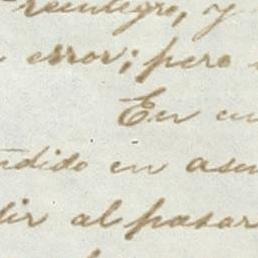 reintegro, y
error; pero
En cu
dido en asu
tir al pasar